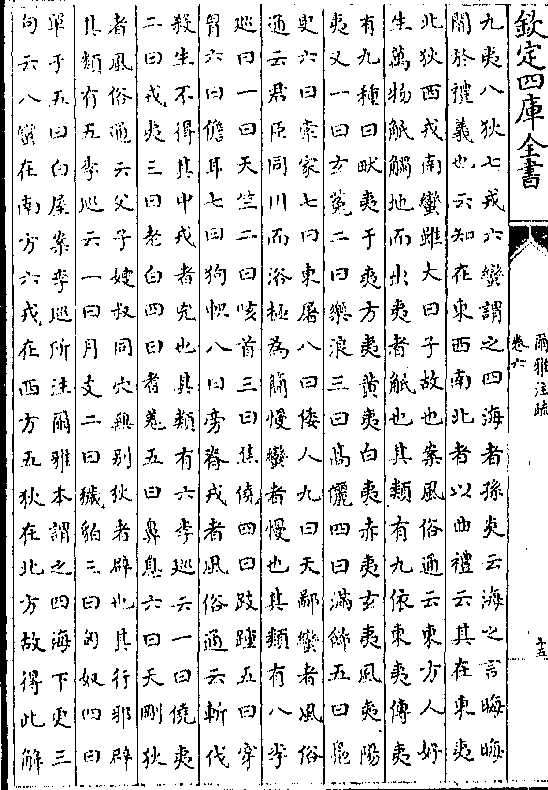 欽定四庫全書
爾雅注疏
卷六
十五
九夷八狄七戎六蠻謂之四海者孫炎云海之言晦晦
闇於禮義也云知在東西南北者以曲禮云其在東夷
北狄西戎南蠻雖大曰子故也案風俗通云東方人好
生萬物觝觸地而出夷者觝也其類有九依東夷傳夷
有九種曰畎夷于夷方夷黃夷白夷赤夷玄夷風夷陽
夷又一曰玄菟二曰樂浪三曰高儷四曰滿飾五曰鳧
臾六曰索家七曰東屠八曰倭人九曰天鄙蠻者風俗
通云君臣同川而浴極為簡慢蠻者慢也其類有八李
巡曰一曰天竺二曰咳首三曰焦僥四曰跂踵五曰穿
胷六曰儋耳七曰狗軹八曰旁脊戎者風俗通云斬伐
殺生不得其中戎者兇也其類有六李巡云一曰僥夷
二曰戎夷三曰老白四曰耆羗五曰鼻息六曰天剛狄
者風俗通云父子嫂叔同穴無别狄者辟也其行邪辟
其類有五李巡云一曰月支二曰穢貊三曰匈奴四曰
單于五曰白屋案李巡所注爾雅本謂之四海下更三
句云八蠻在南方六戎在西方五狄在北方故得此解